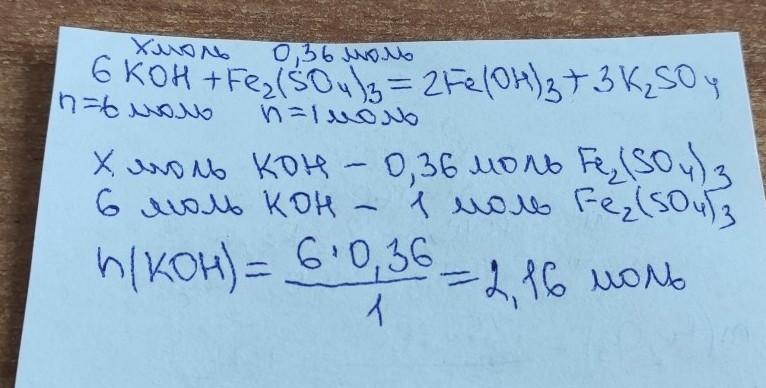 x моль 0,36 моль
6 KOH + Fe₂(SO₄)₃ = 2Fe(OH)₃ + 3K₂SO₄
n=6 моль n=1 моль
X моль KOH – 0,36 моль Fe₂(SO₄)₃
6 моль KOH – 1 моль Fe₂(SO₄)₃
n(KOH) = 6·0,36 / 1 = 2,16 моль